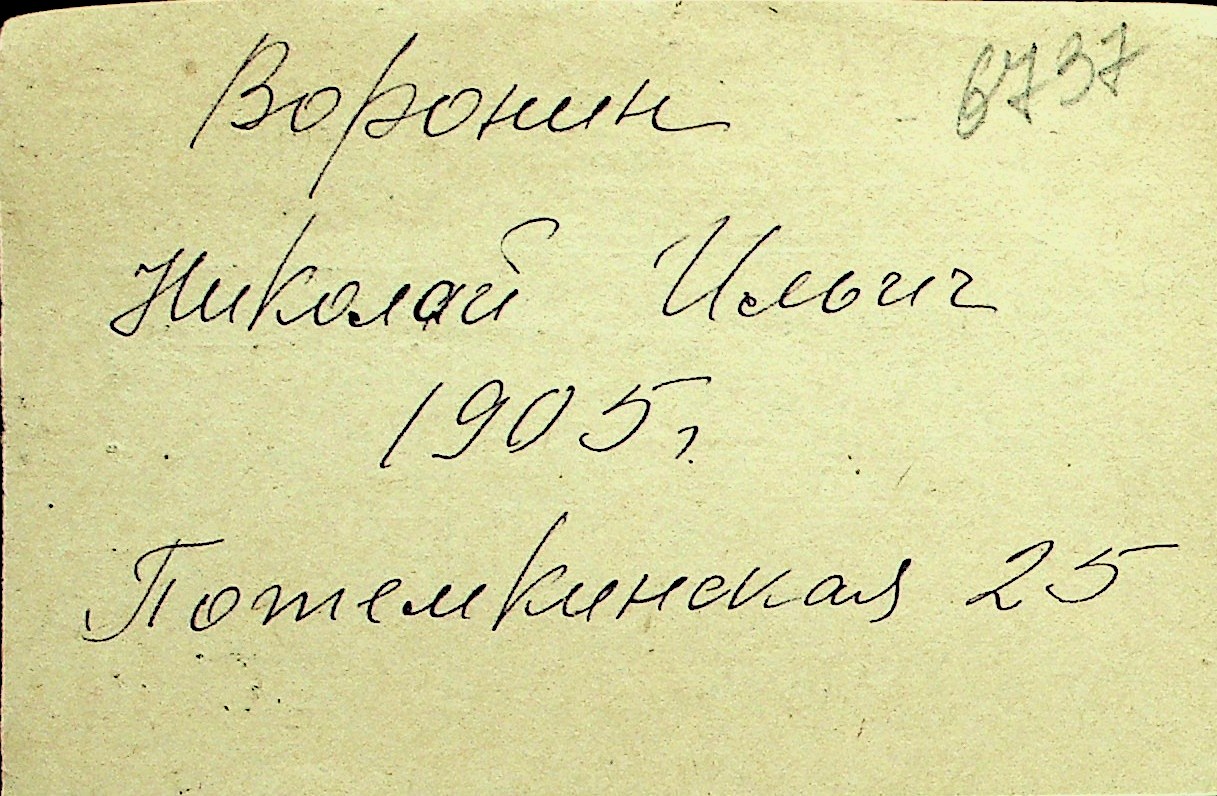 Воронин 6737
Николай Ильич
1905г
Потемкинская 25